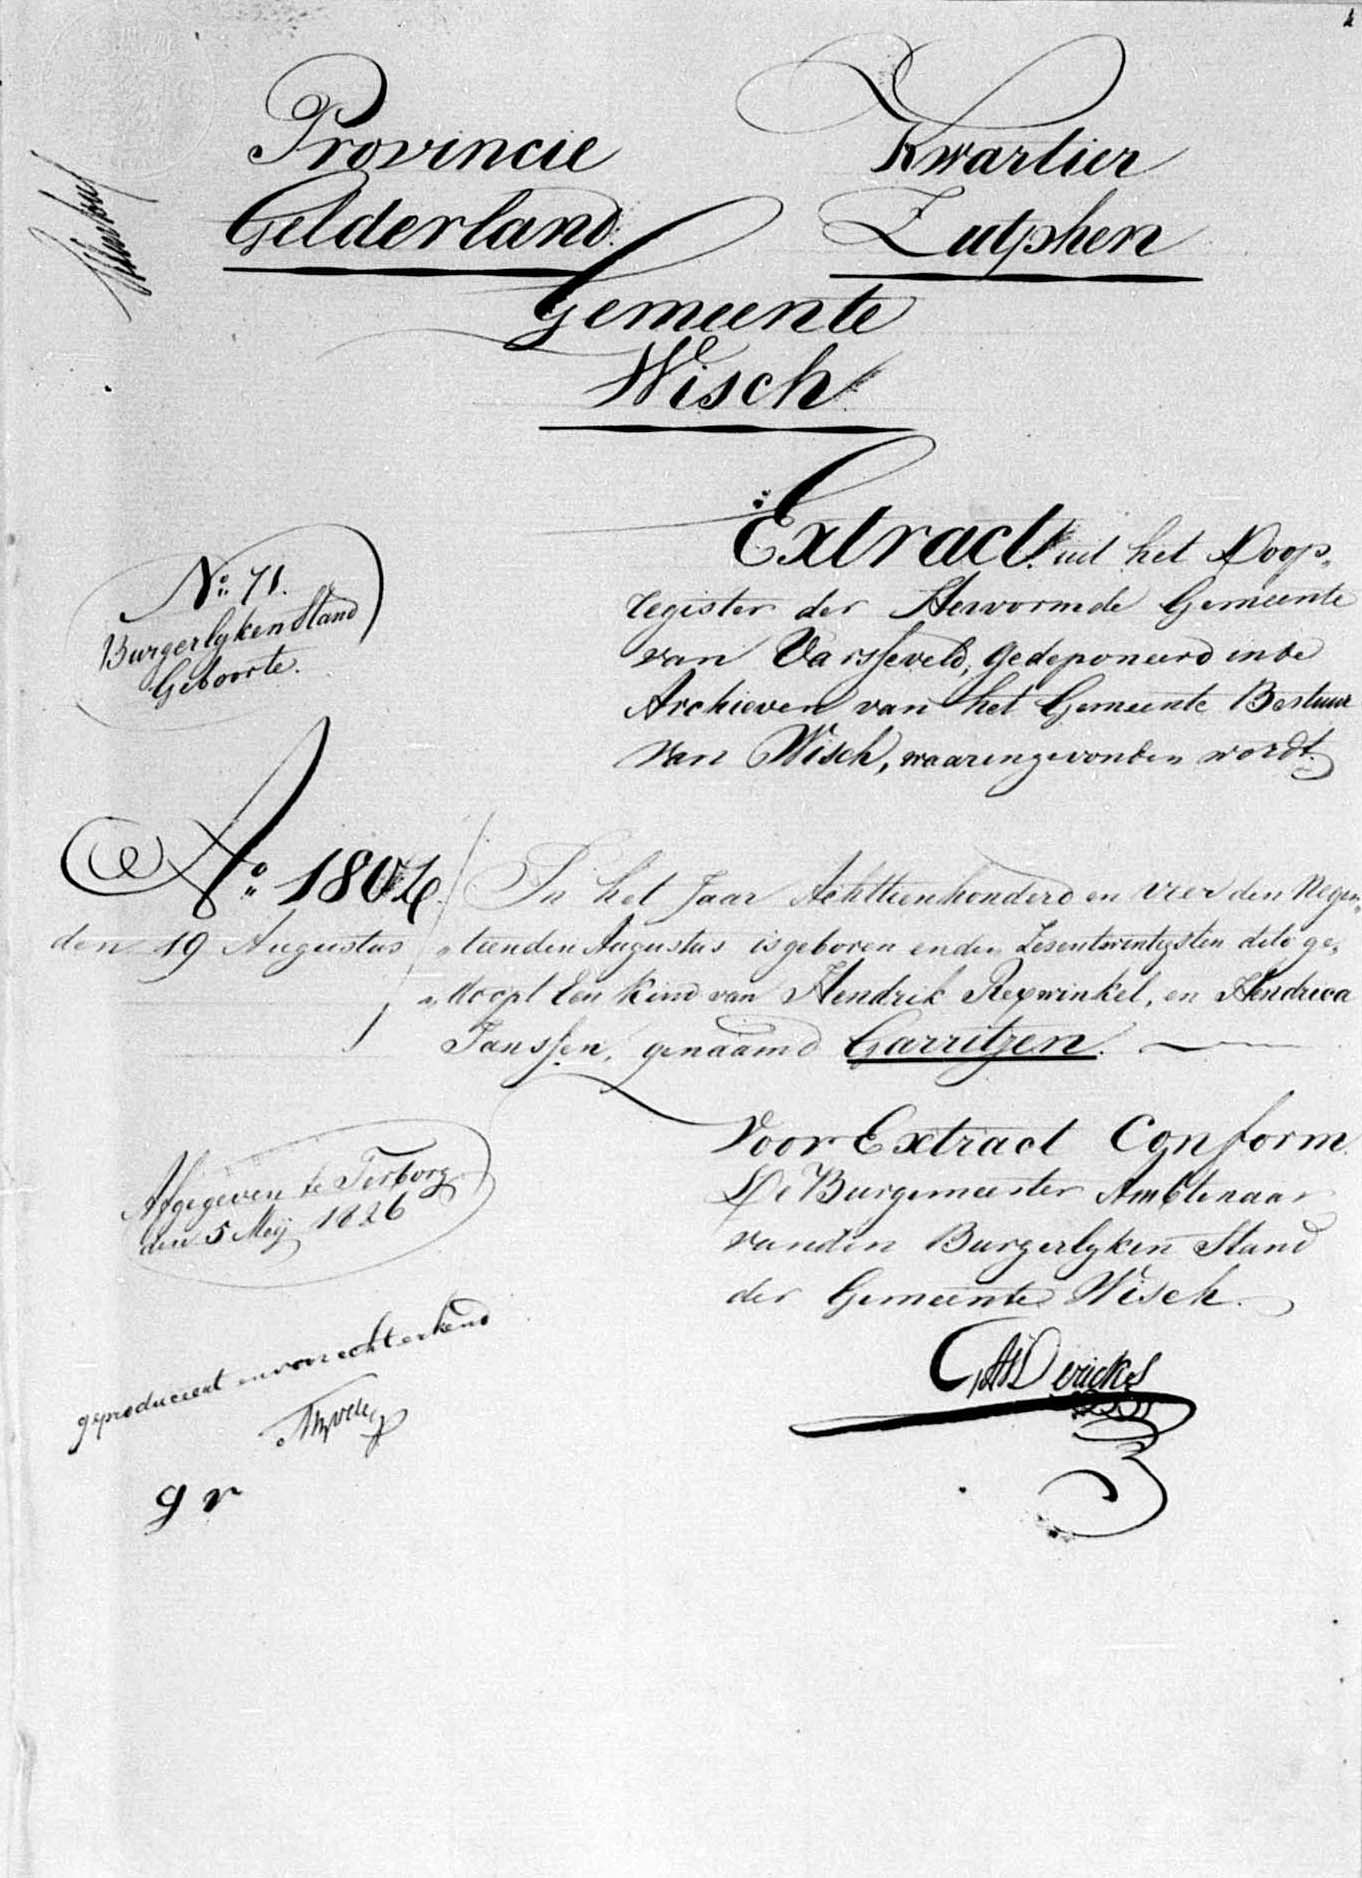 Provincie
Gelderland.
Kwartier
Zutphen
Gemeente
Wisch.
No. 71.
Burgerlyken Stand
Geboorte.
Extract. uit het Doop„
register der Hervormde Gemeente
van Varsseveld, gedeponeerd in de
Archieven van het Gemeente Bestuur
van Wisch, waarin gevonden wordt.
Ao. 1804.
den 19 Augustus
In het Jaar Achttienhonderd en vier den Negen„
„tienden Augustus is geboren en den Zesentwintigsten dito ge„
„doopt Een Kind van Hendrik Rexwinkel, en Hendrica
Janssen, genaamd Garritjen.
Afgegeven te Terborg
den 5 Meij 1826
Voor Extract Conform
De Burgemeester Ambtenaar
van den Burgerlyken Stand
der Gemeente Wisch.
geproduceert en voor echt erkend
g r